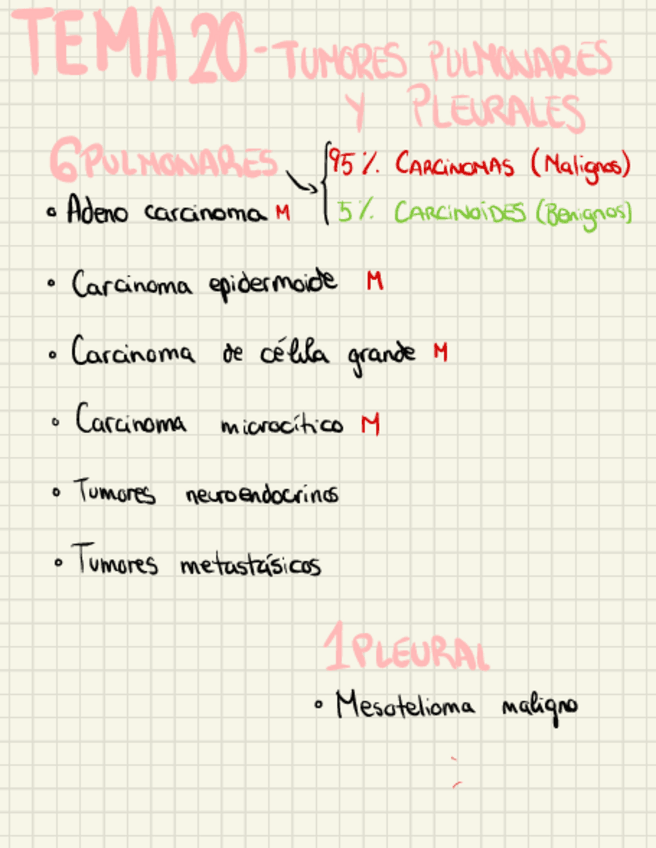 TEMA 20 - TUMORES PULMONARES
Y PLEURALES
6 PULMONARES
95 %. CARCINOMAS (Malignos)
5 %. CARCINOIDES (Benignos)
• Adeno carcinoma M
• Carcinoma epidermoide M
• Carcinoma de célula grande M
• Carcinoma microcítico M
• Tumores neuroendocrinos
• Tumores metastásicos
1 PLEURAL
• Mesotelioma maligno